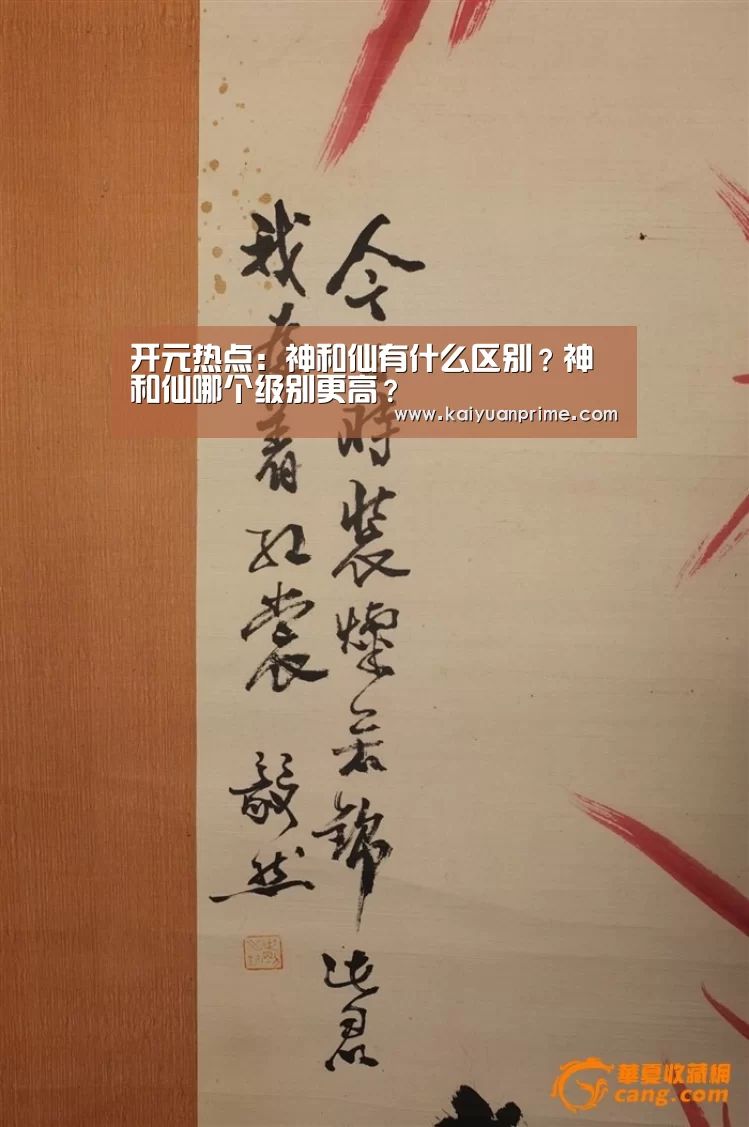 开元热点：神和仙有什么区别？神
和仙哪个级别更高？
www.kaiyuanprime.com
今 時裝燦若錦此君
我 着紅裳 毅然
華夏收藏網
cang.com